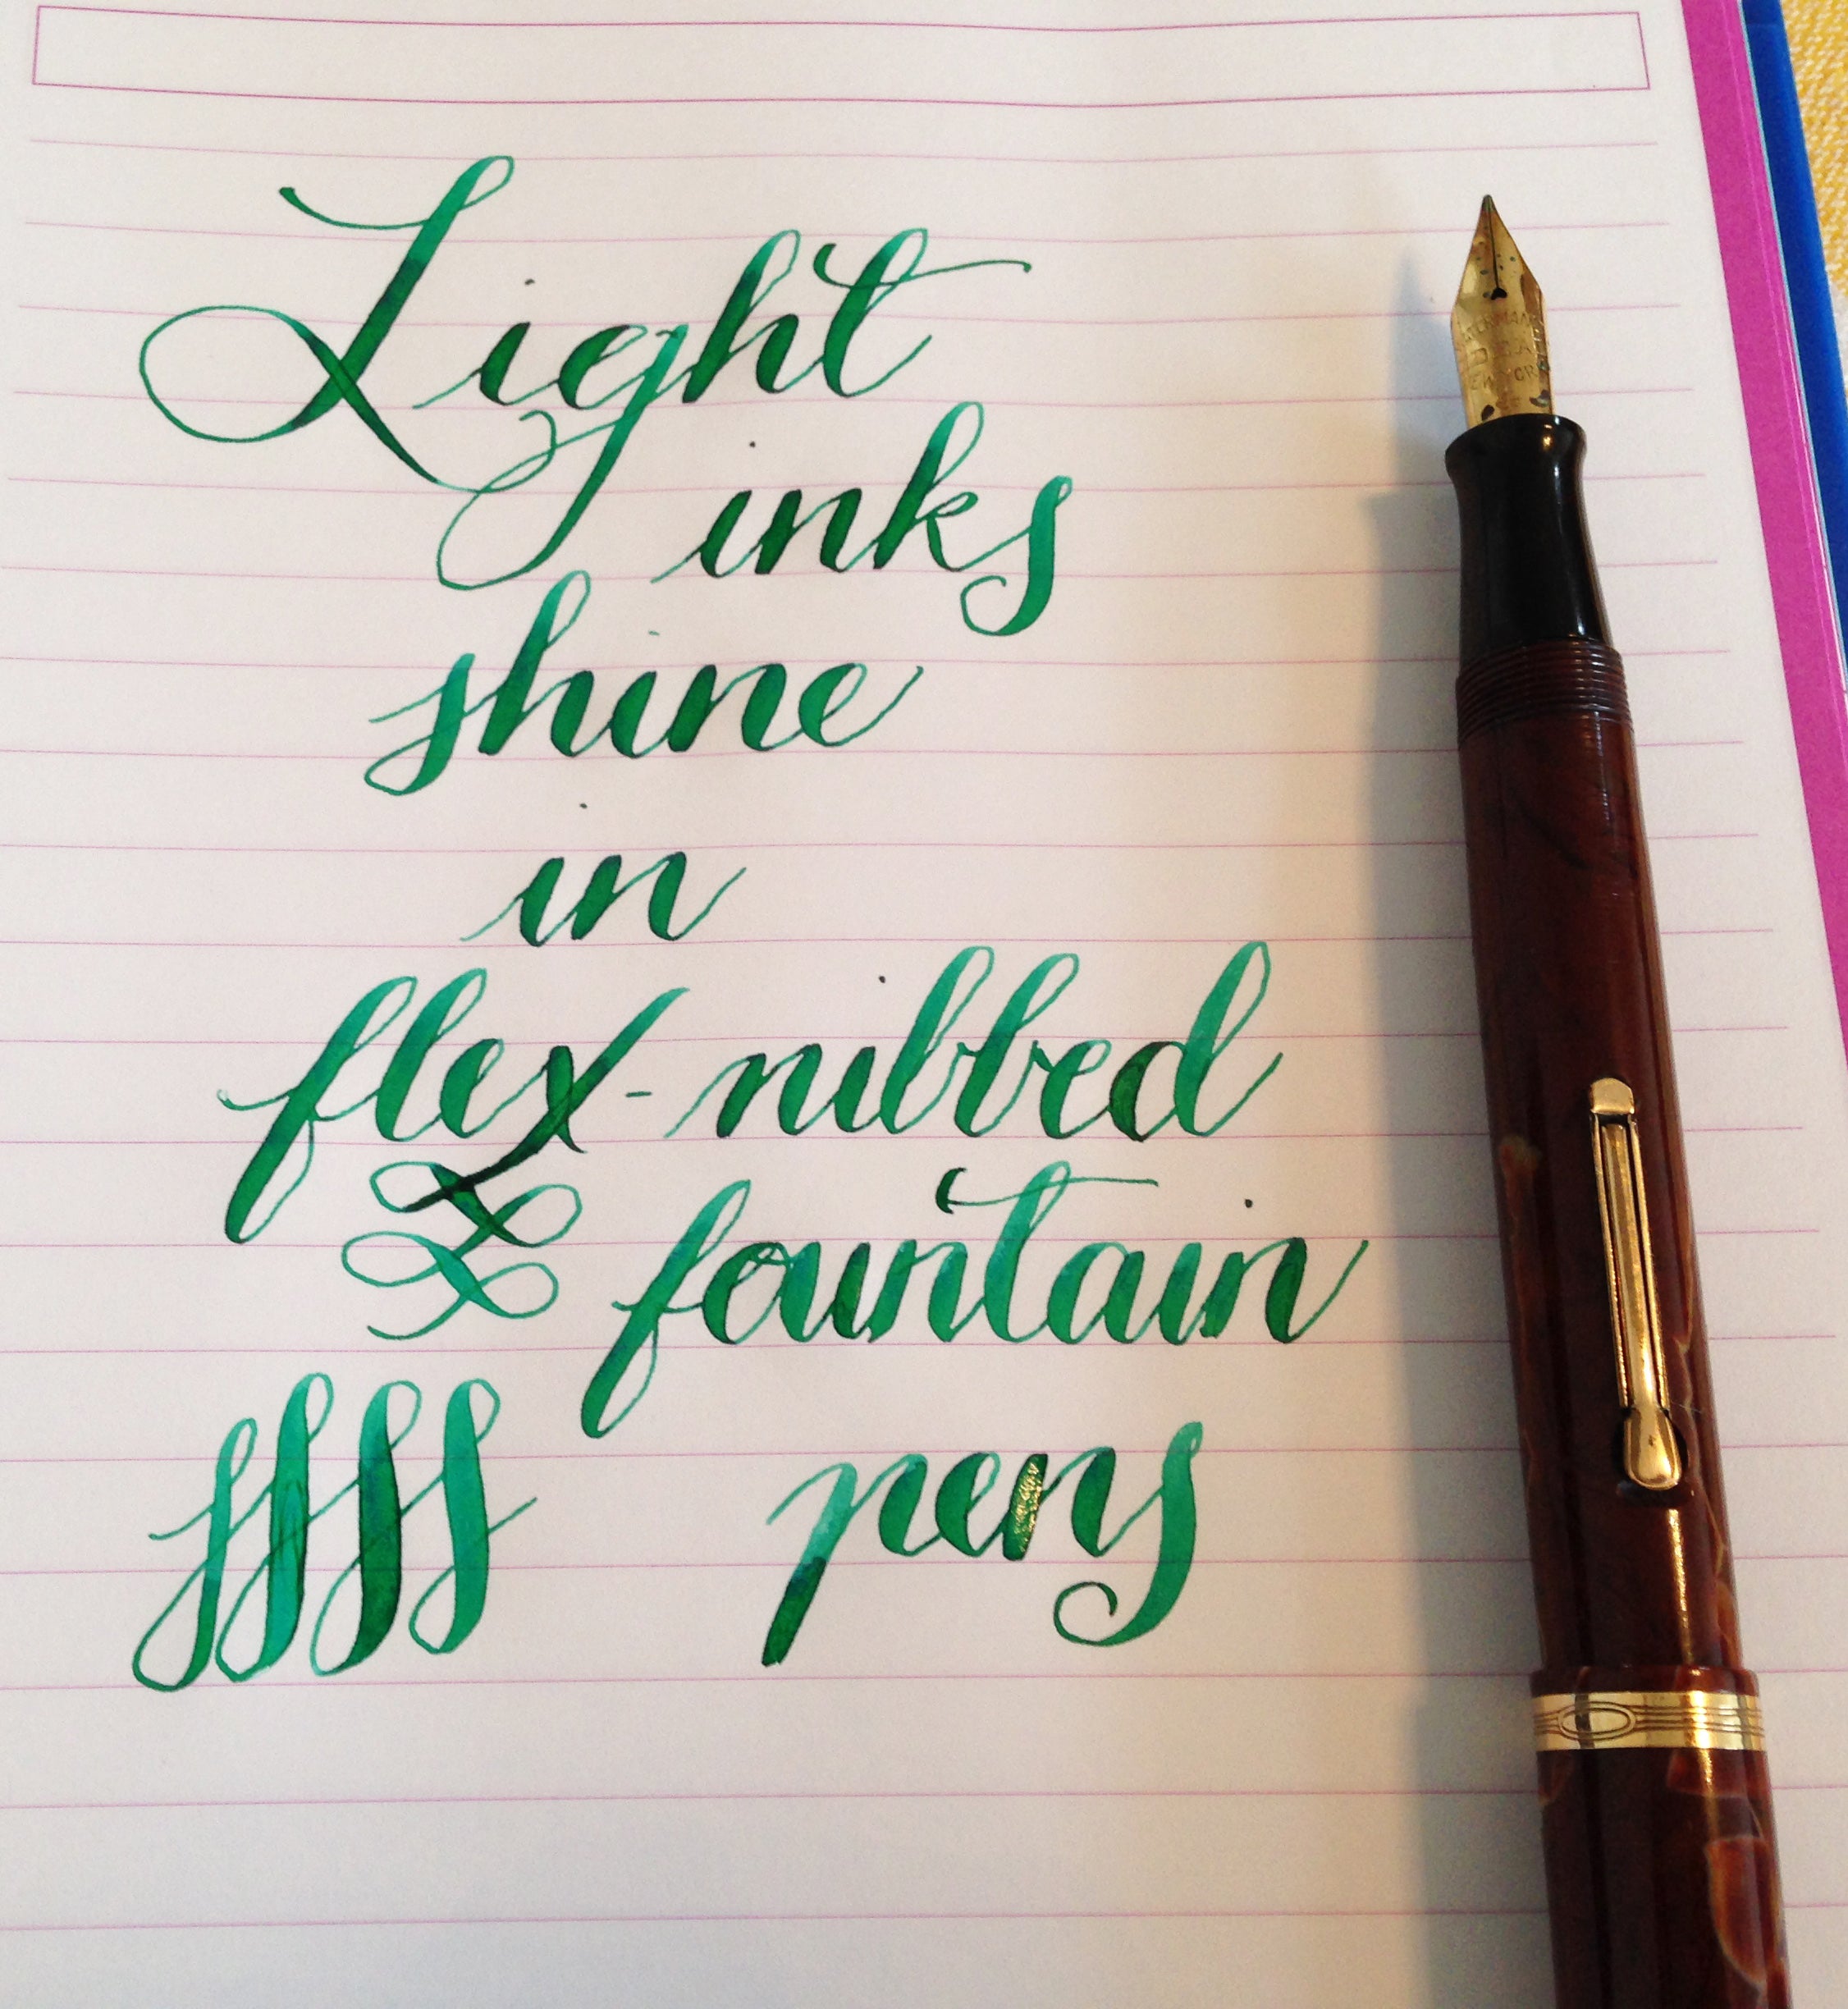 Light
inks
shine
in
flex-nibbed
fountain
pens
WATERMAN'S
IDEAL
NEW YORK